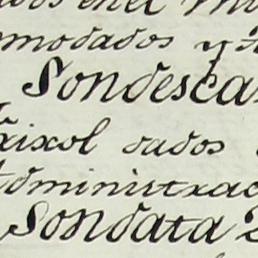 en el
modados y
Sondesca
Xixol dados
Administrac
Sondata 2